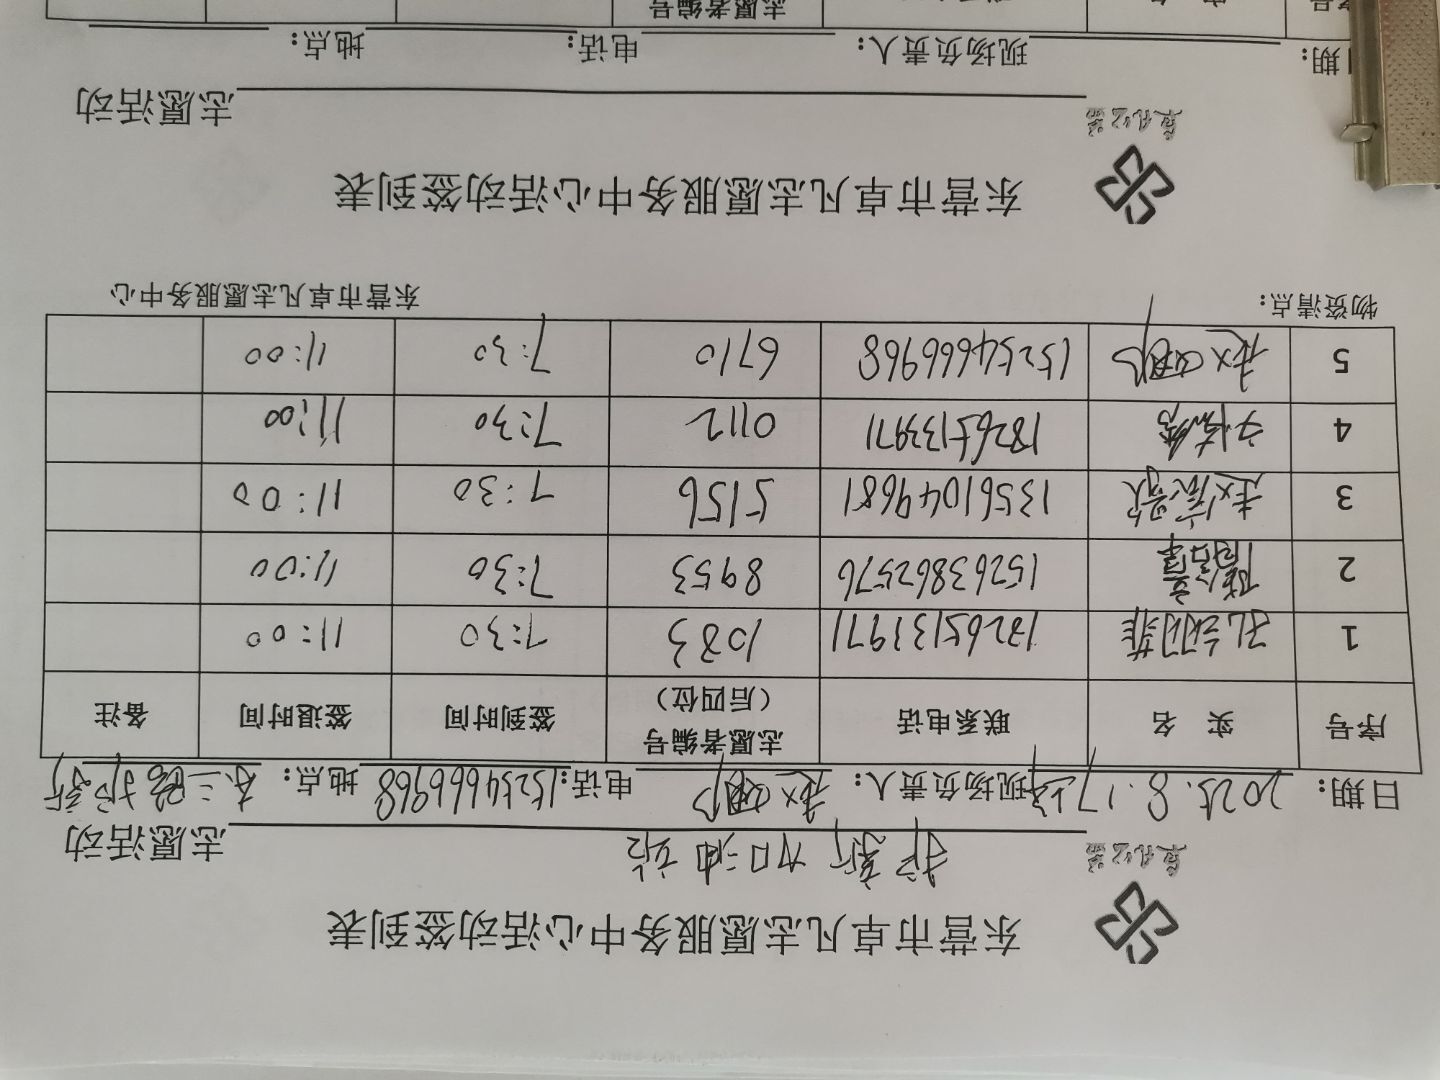 东营市卓凡志愿服务中心活动签到表
卓凡公益 护新加油站 志愿活动
日期: 2025.8.17上午 现场负责人: 电话:15254666968 地点: 东三路护新
序号 实 名 联系电话 志愿者编号（后四位） 签到时间 签退时间 备注
1 孔令菲 1083 7:30 11:00
2 15263862576 8953 7:30 11:00
3 赵信歌 13561049681 5156 7:30 11:00
4 18265133971 0112 7:30 11:00
5 15254666968 6710 7:30 11:00
物资清点: 东营市卓凡志愿服务中心
东营市卓凡志愿服务中心活动签到表
卓凡公益 志愿活动
日期: 现场负责人: 电话: 地点:
序号 实 名 志愿者编号